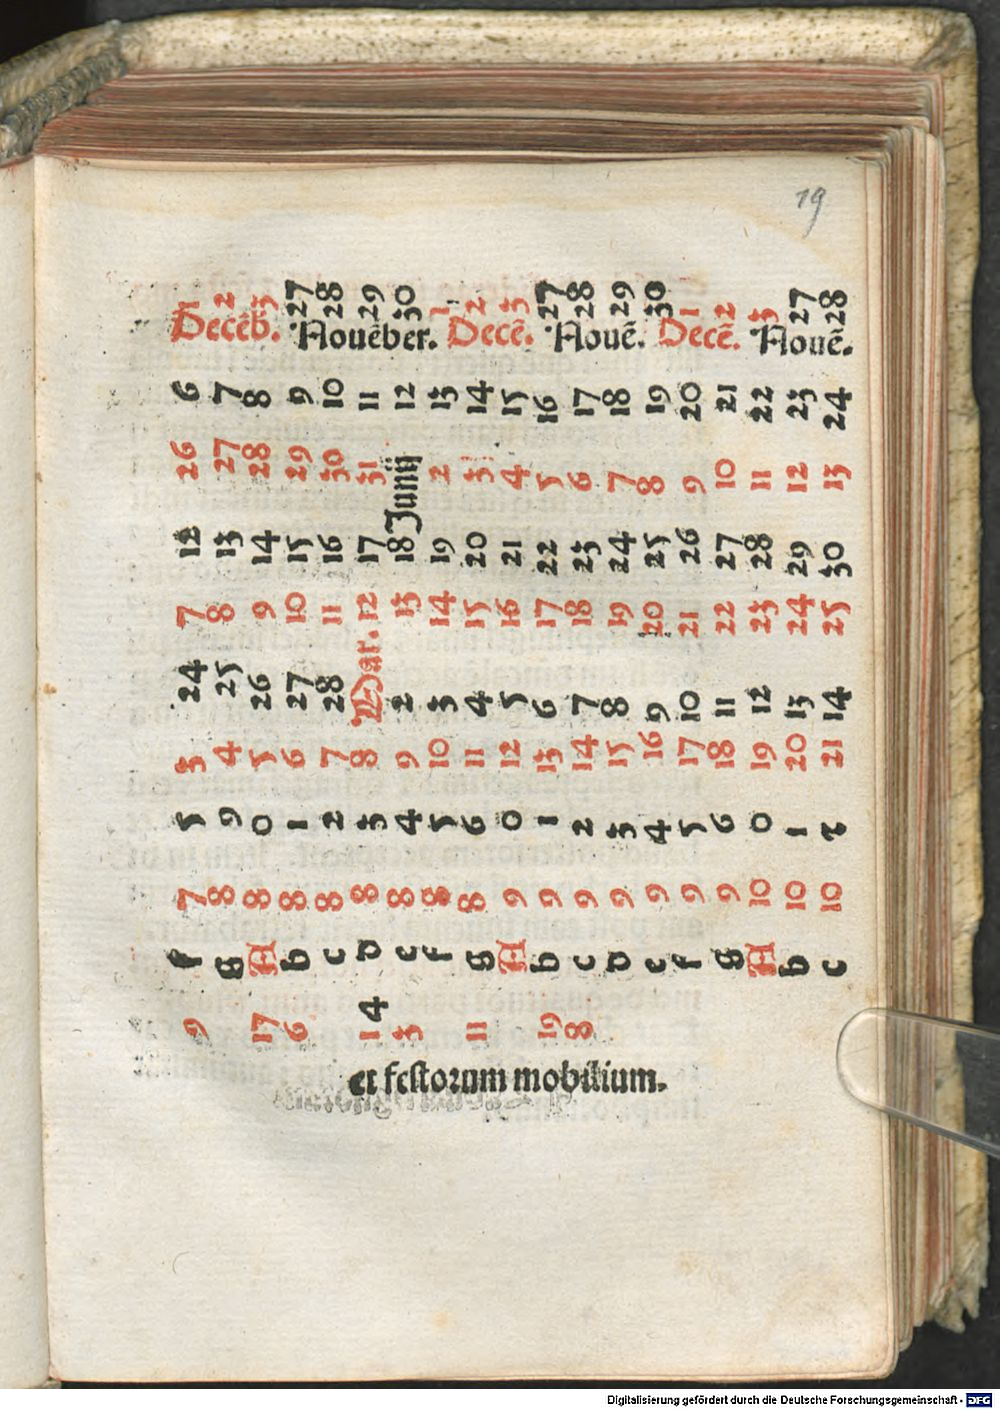 19
et festorum mobilium.
9 f 7 5 3 24 7 12 26 6 Decēb. 1
g 8 9 4 25 8 13 27 7 2
17 A 8 0 5 26 9 14 28 8 3
6 b 8 1 6 27 10 15 29 9 Nouēber. 27
c 8 2 7 28 11 16 30 10 28
1 4 d 8 3 8 Mar. 12 17 31 11 29
3 e 8 4 9 2 13 18 Junij 12 30
f 8 5 10 3 14 19 2 13 Decē. 1
11 g 8 6 11 4 15 20 3 14 2
A 9 0 12 5 16 21 4 15 3
19 b 9 1 13 6 17 22 5 16 Nouē. 27
8 c 9 2 14 7 18 23 6 17 28
d 9 3 15 8 19 24 7 18 29
e 9 4 16 9 20 25 8 19 30
f 9 5 17 10 21 26 9 20 Decē. 1
g 9 6 18 11 22 27 10 21 2
A 10 0 19 12 23 28 11 22 3
b 10 1 20 13 24 29 12 23 Nouē. 27
c 10 2 21 14 25 30 13 24 28
Digitalisierung gefördert durch die Deutsche Forschungsgemeinschaft - DFG